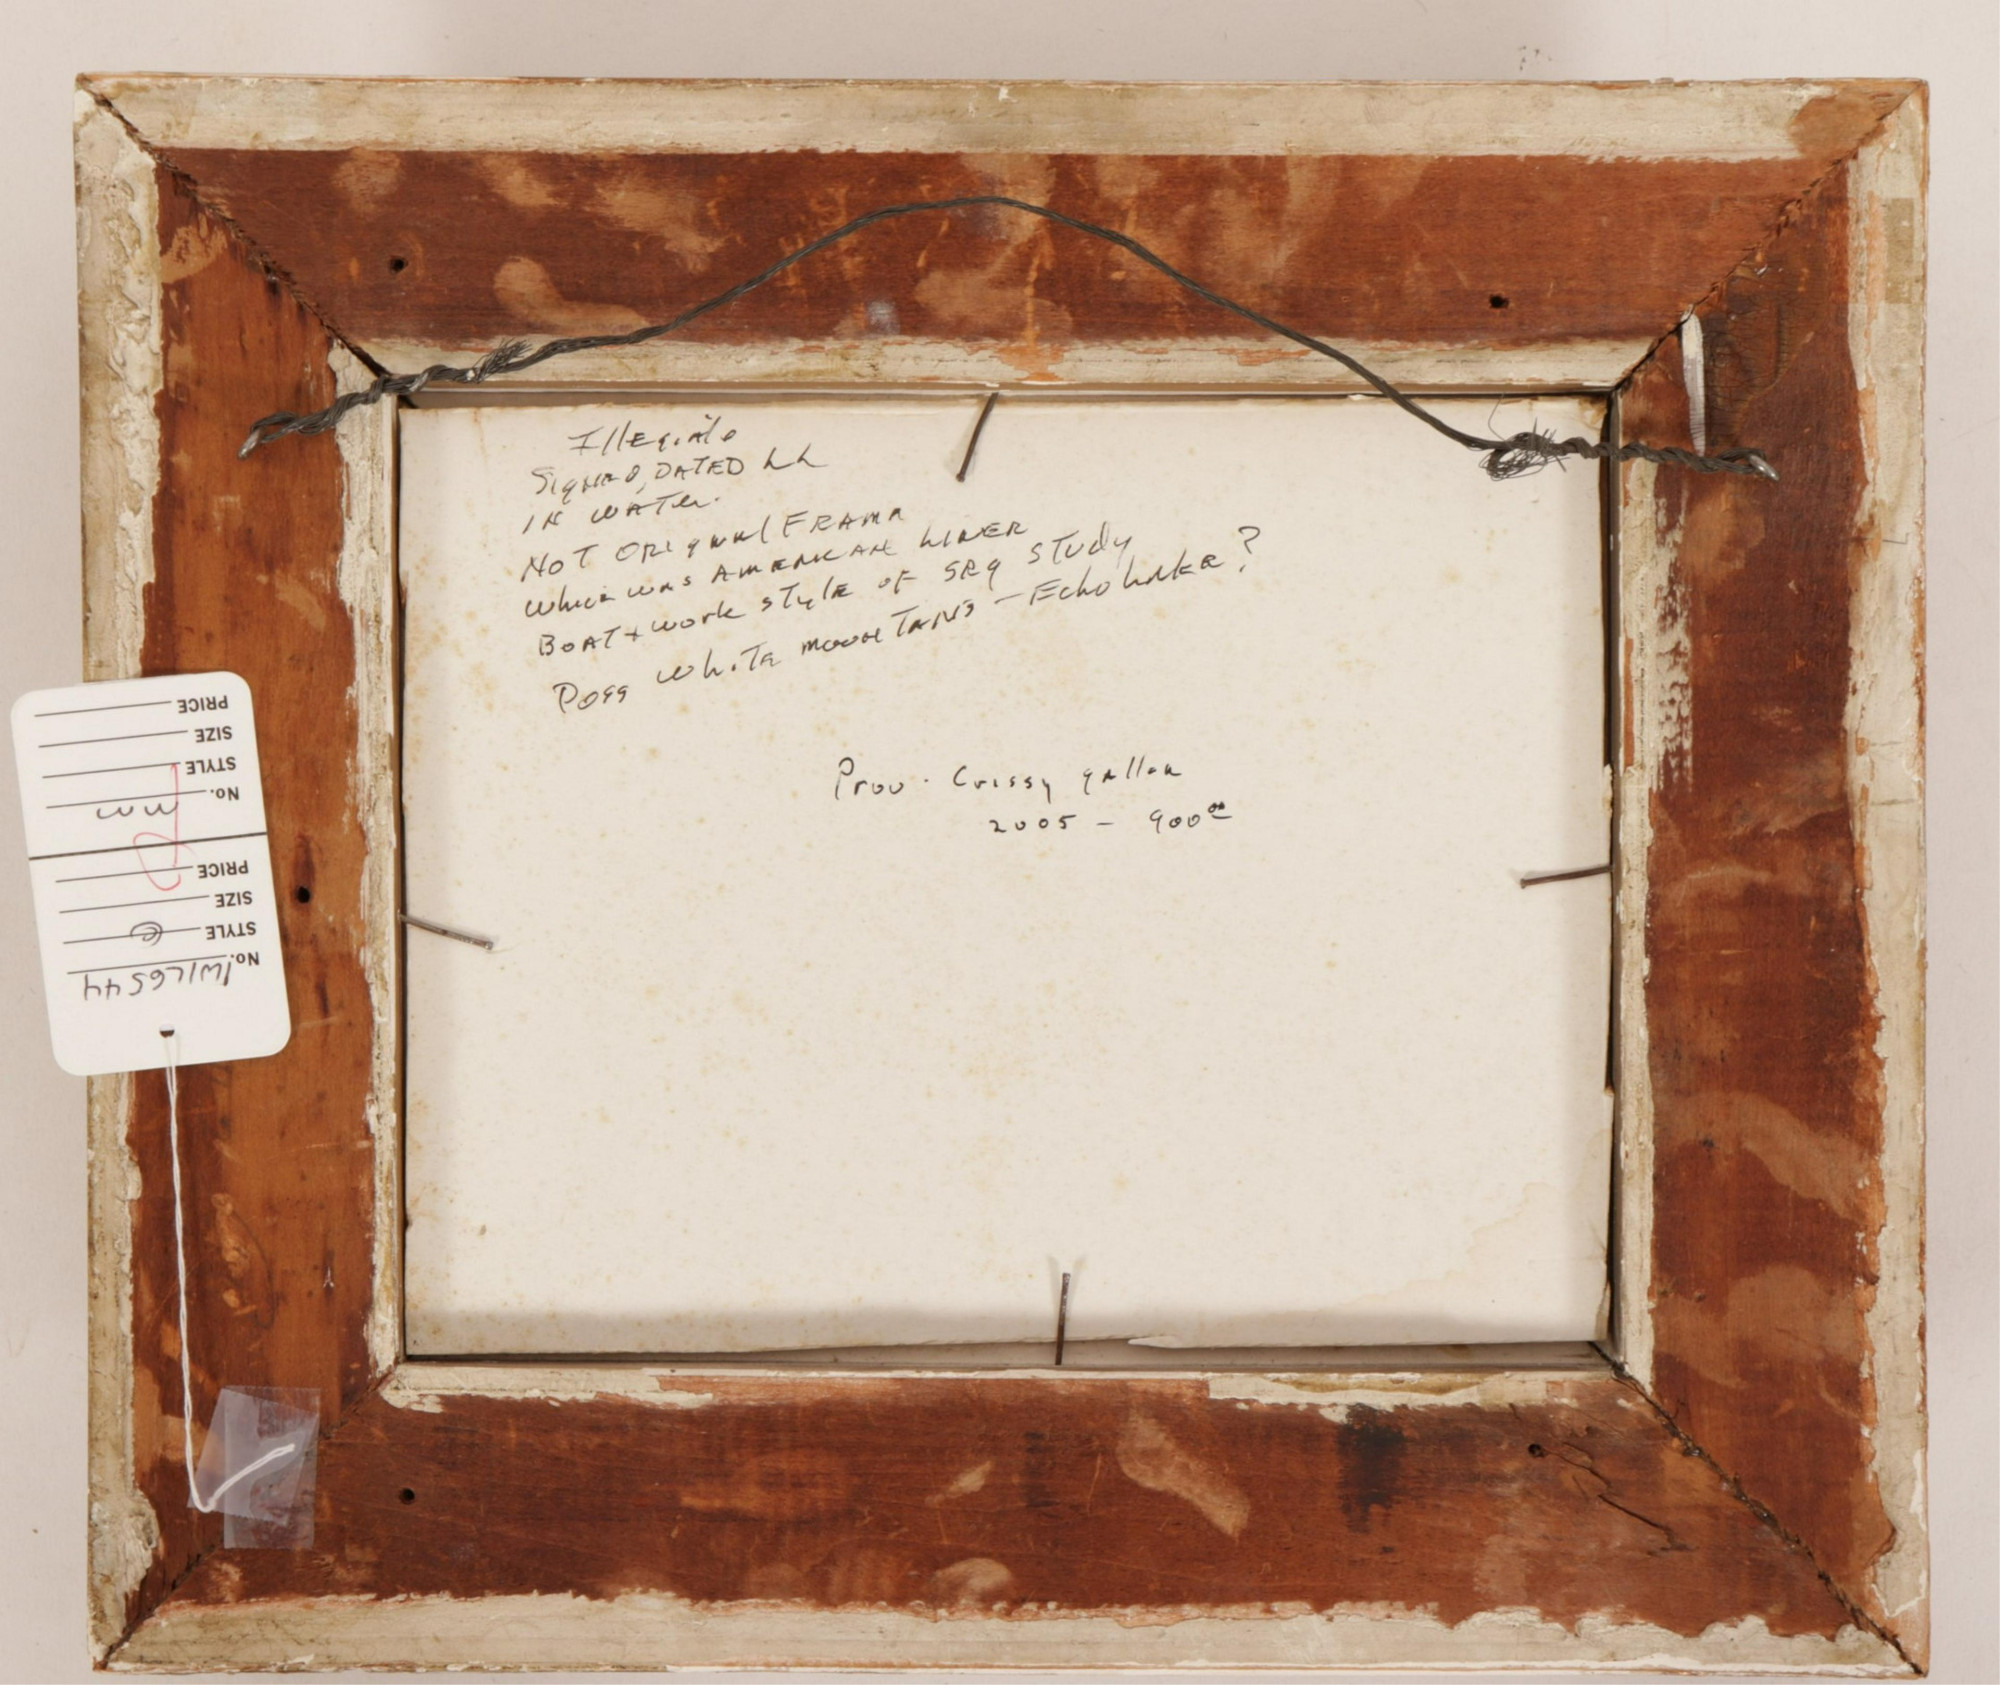 Illegible
Signed, DATED LL
IN WATER.
NOT ORIginal FRAME
which was AMERICAN LINER
BOAT + work style of SRG STUDY
Poss White MOUNTAINS - Echo Lake?
Prov. Crissy gallery
2005 - 900 00
No. WIL6544
STYLE e
SIZE
PRICE
No. mm
STYLE
SIZE
PRICE